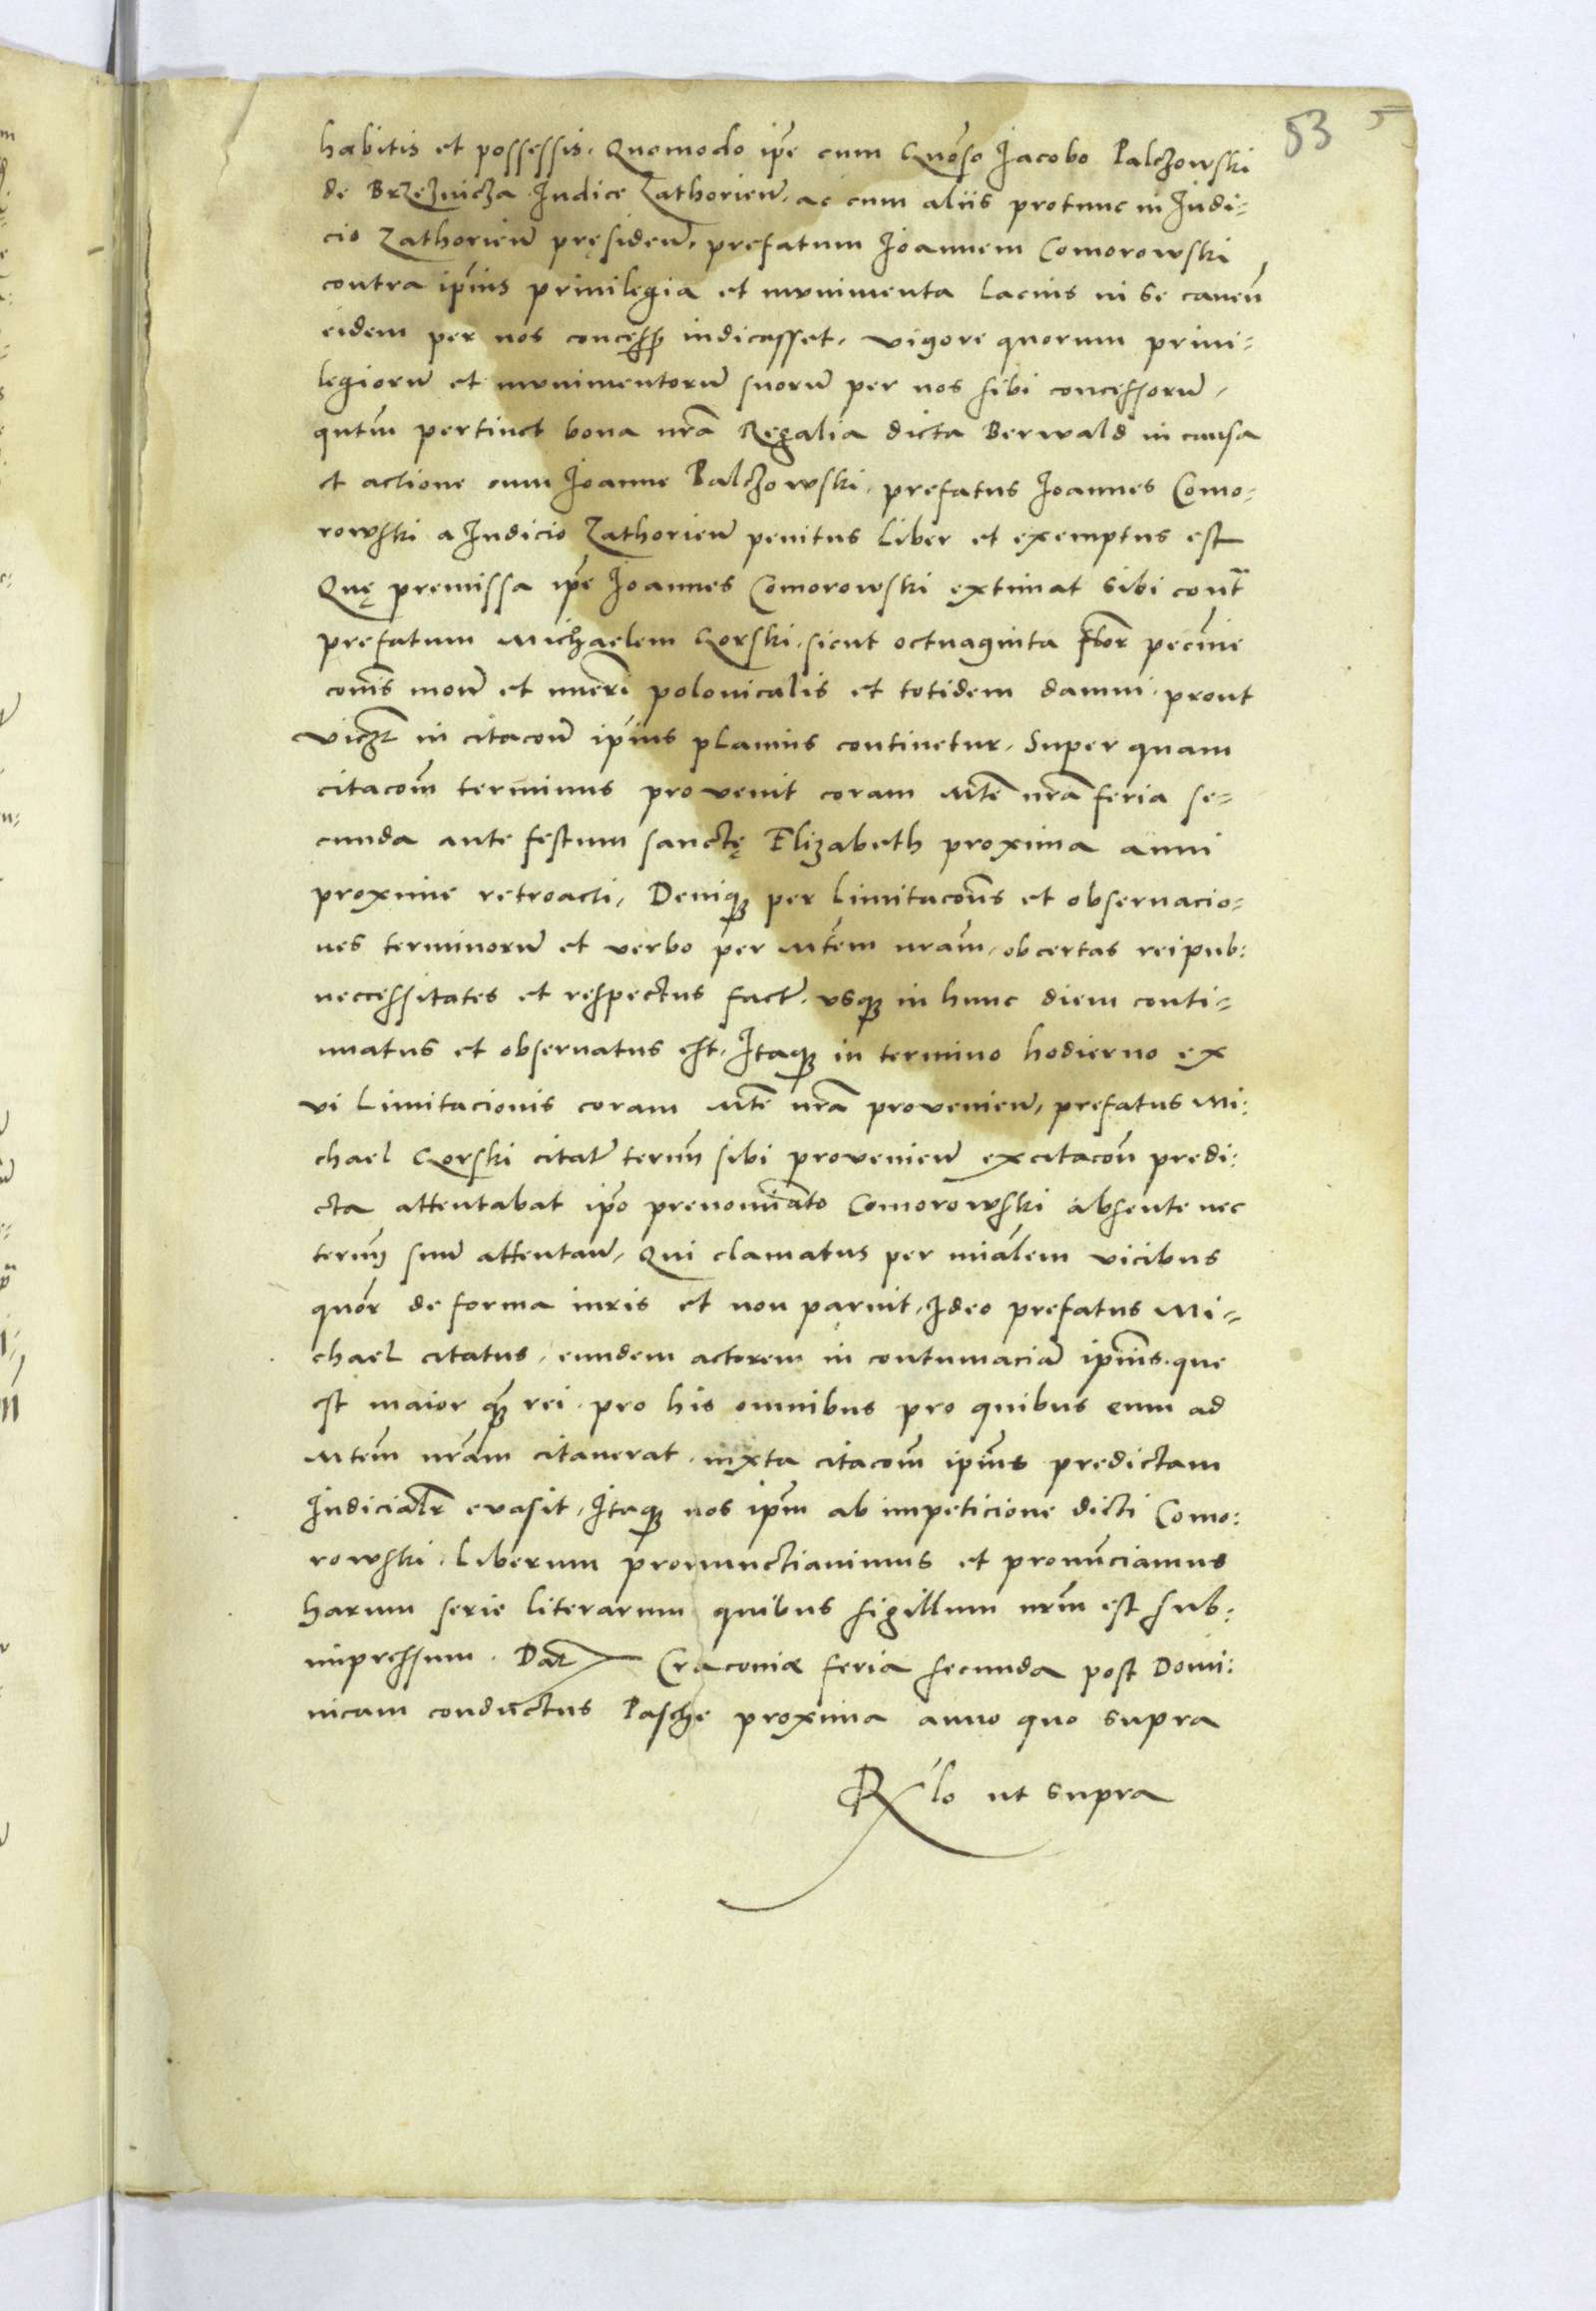 53
habitis et possessis. Quomodo ip̃e cum Gñoso Jacobo Palczowski
de Brzeznicza Judice Zathorien̄. ac cum aliis protunc in Judi-
cio Zathorien̄ pręsiden̄. prefatum Joannem Comorowski
contra ip̃ius priuilegia et munimenta lacius in se canen̄
eidem per nos concess̄ iudicasset. vigore quorum priui-
legiorū et munimentorū suorū per nos sibi concessorū,
qntm̄ pertinet bona nr̃a Regalia dicta Berwald in causa
et actione cum Joanne Palczowski. prefatus Joannes Como-
rowski a Judicio Zathorien̄ penitus liber et exemptus est
Quę premissa ip̃e Joannes Comorowski extimat sibi cont̃
prefatum Michaelem Gorski. sicut octuaginta flor̄ pecūie
com̄is mon̄ et nūeri polonicalis et totidem damni. prout
vičz in citacōn̄ ip̃ius planius continetur. Super quam
citacōm̄ terminus provenit coram Mt̃e nr̃a feria se-
cunda ante festum sanctę Elizabeth proxima anni
proxime retroacti, Deniq3 per limitacōn̄s et obseruacio-
nes terminorū et verbo per Mt̃em nrãm, ob certas reipub:
neccessitates et respectus fact̃. vsq3 in hunc diem conti-
nuatus et obseruatus est. Itaq3 in termino hodierno ex
vi limitacionis coram Mt̃e nr̃a provenien̄, prefatus Mi-
chael Gorski citat̃ termī sibi provenien̄ ex citacōn̄ predi-
cta attentabat ip̃o prenomīato Comorowski absente nec
termī suū attentan̄, Qui clamatus per miãlem vicibus
quor̃ de forma iuris et non paruit, Ideo prefatus Mi-
chael citatus, eundem actorem in contumaciā ip̃ius. que
est maior q3̃ rei. pro his omnibus pro quibus eum ad
Mt̃em nrãm citauerat. iuxta citacōm̄ ip̃ius predictam
Judicialr̃ evasit, Itaq3 nos ip̃m ab impeticione dicti Como-
rowski. liberum pronunctiauimus et pronūciamus
harum serie literarum quibus sigillum nr̃m est sub-
impressum. Dat̃ Craconiæ feria secunda post Domi-
nicam conductus Pasche proxima anno quo supra
Rl̃o ut supra